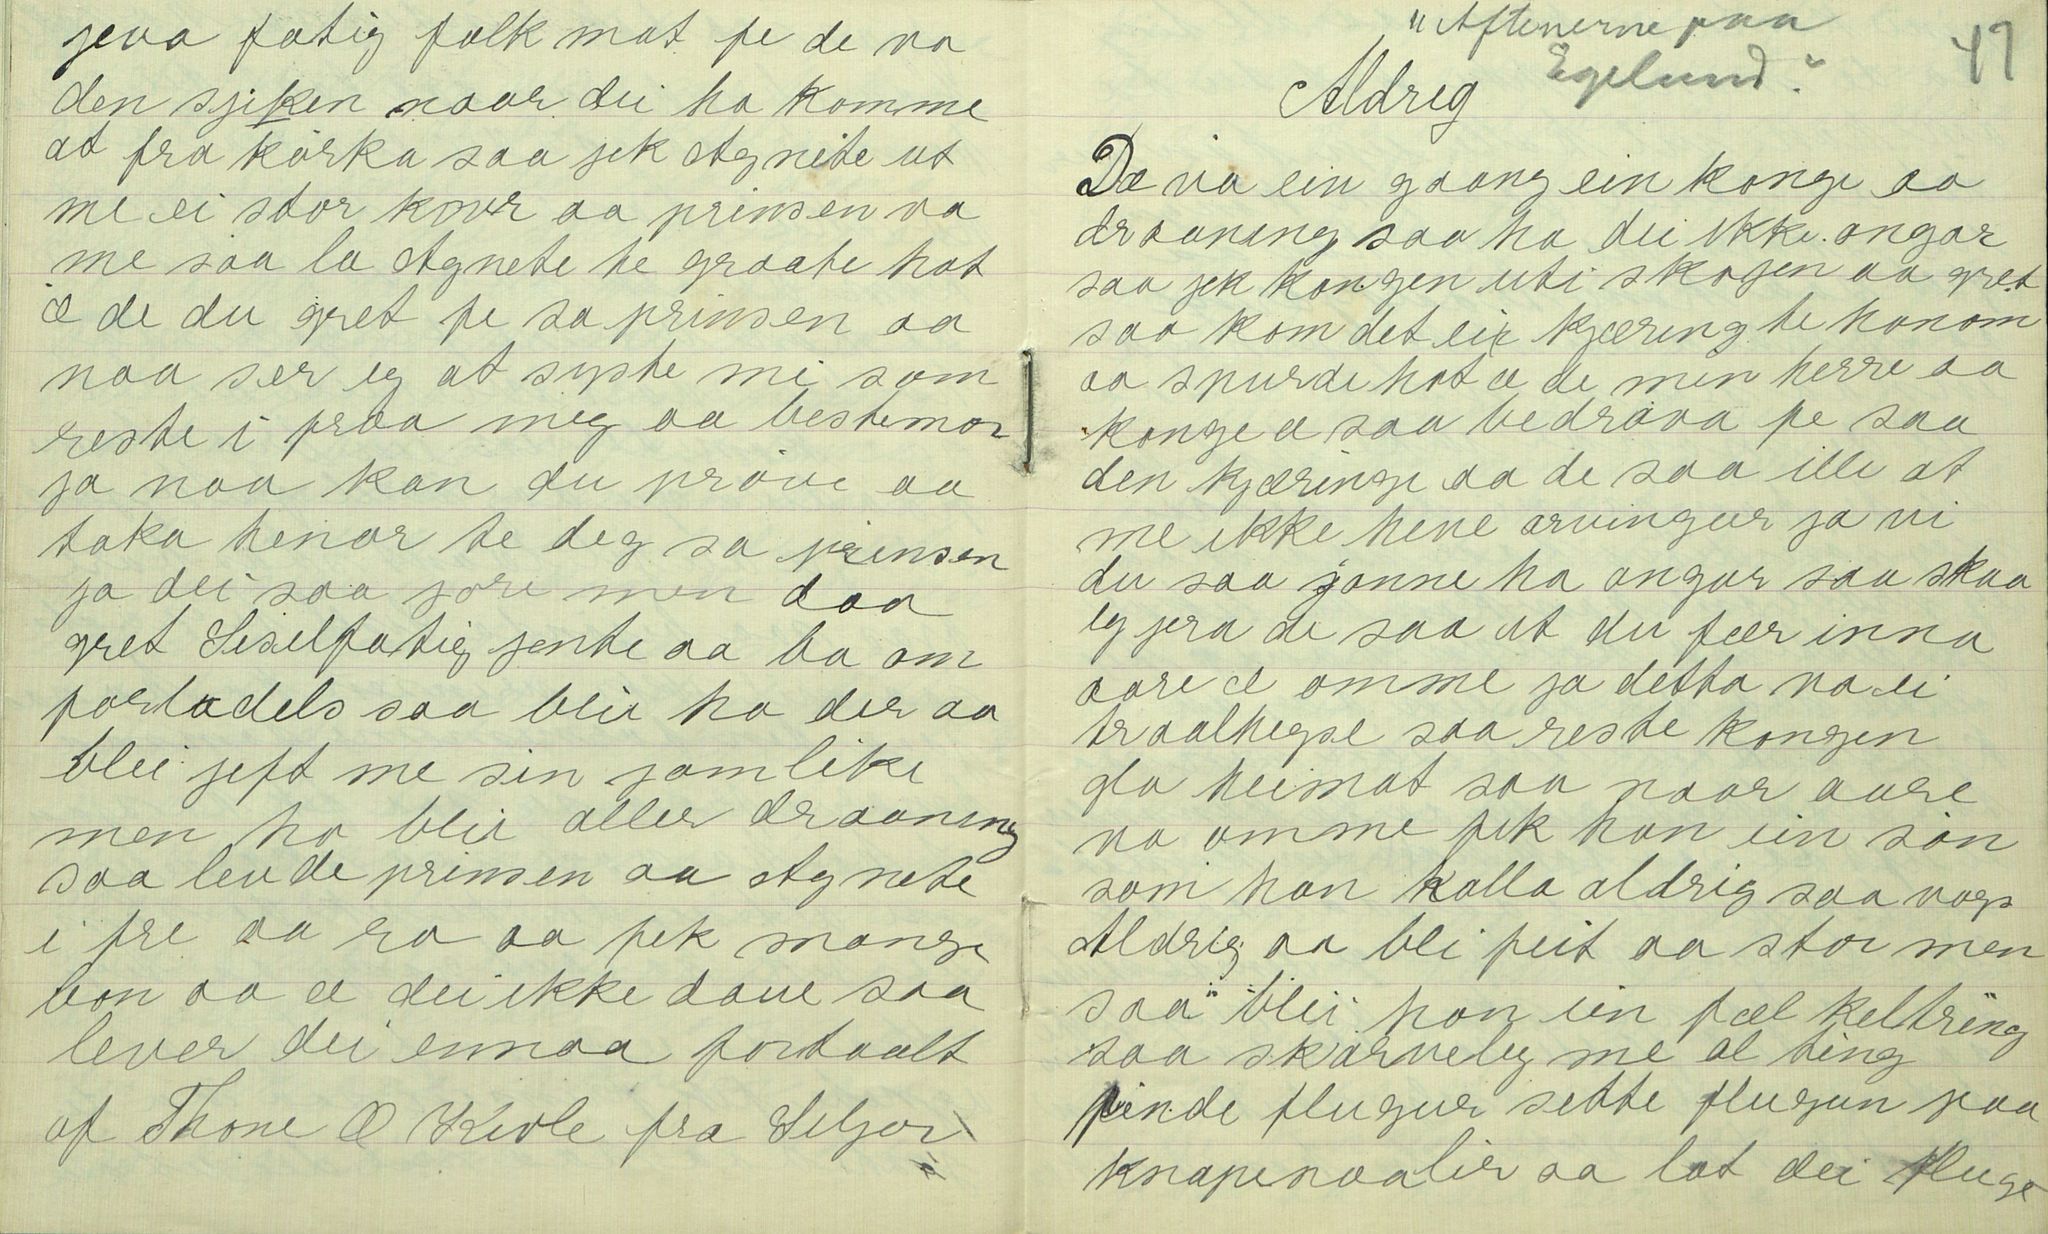 jeva fatig folk mat fe de va
den sjiken naar dei ha komme
at fra kørka saa jek Agnete ut
me ei stor korr aa prinsen va
me saa la Agnete te graate hot
æ de du gret fe sa prinsen aa
naa ser eg at syste mi som
reste i fraa meg aa bestemor
ja naa kan du prøve aa
taka henar te deg sa prinsen
ja dei saa jore men daa
gret Siselfatig jente aa ba om
forladels saa blei ho der aa
blei jeft me sin jamlike
men ho blei aller draaning
saa levde prinsen aa Agnete
i fre aa ro aa fek mange
bon aa æ dei ikke daue saa
lever dei ennaa fortaalt
af Thone Ø Kivle fra Seljor
"Aftenerne paa
Egelund".
49
Aldrig
De va ein gaang ein konge aa
draaning saa ha dei ikke ongar
saa jek kongen uti skogen aa gret
saa kom det ein kjæring te honom
aa spurde hot æ de min herre aa
konge æ saa bedrøva fe saa
den kjæringe aa de saa ille at
me ikke heve arvingur ja vi
du saa jonne ha ongar saa skaa
eg jera de saa at du fær inna
aare æ omme ja detta va ei
traalhegse saa reste kongen
gla heimat saa naar aare
va omme fik han ein søn
som han kalla aldrig saa vogs
Aldrig aa bli feit aa stor men
saa blei han ein fæl keltring
saa skarveleg me al ting
finde flugur sette flugun paa
knapenaaler aa lot dei fluge